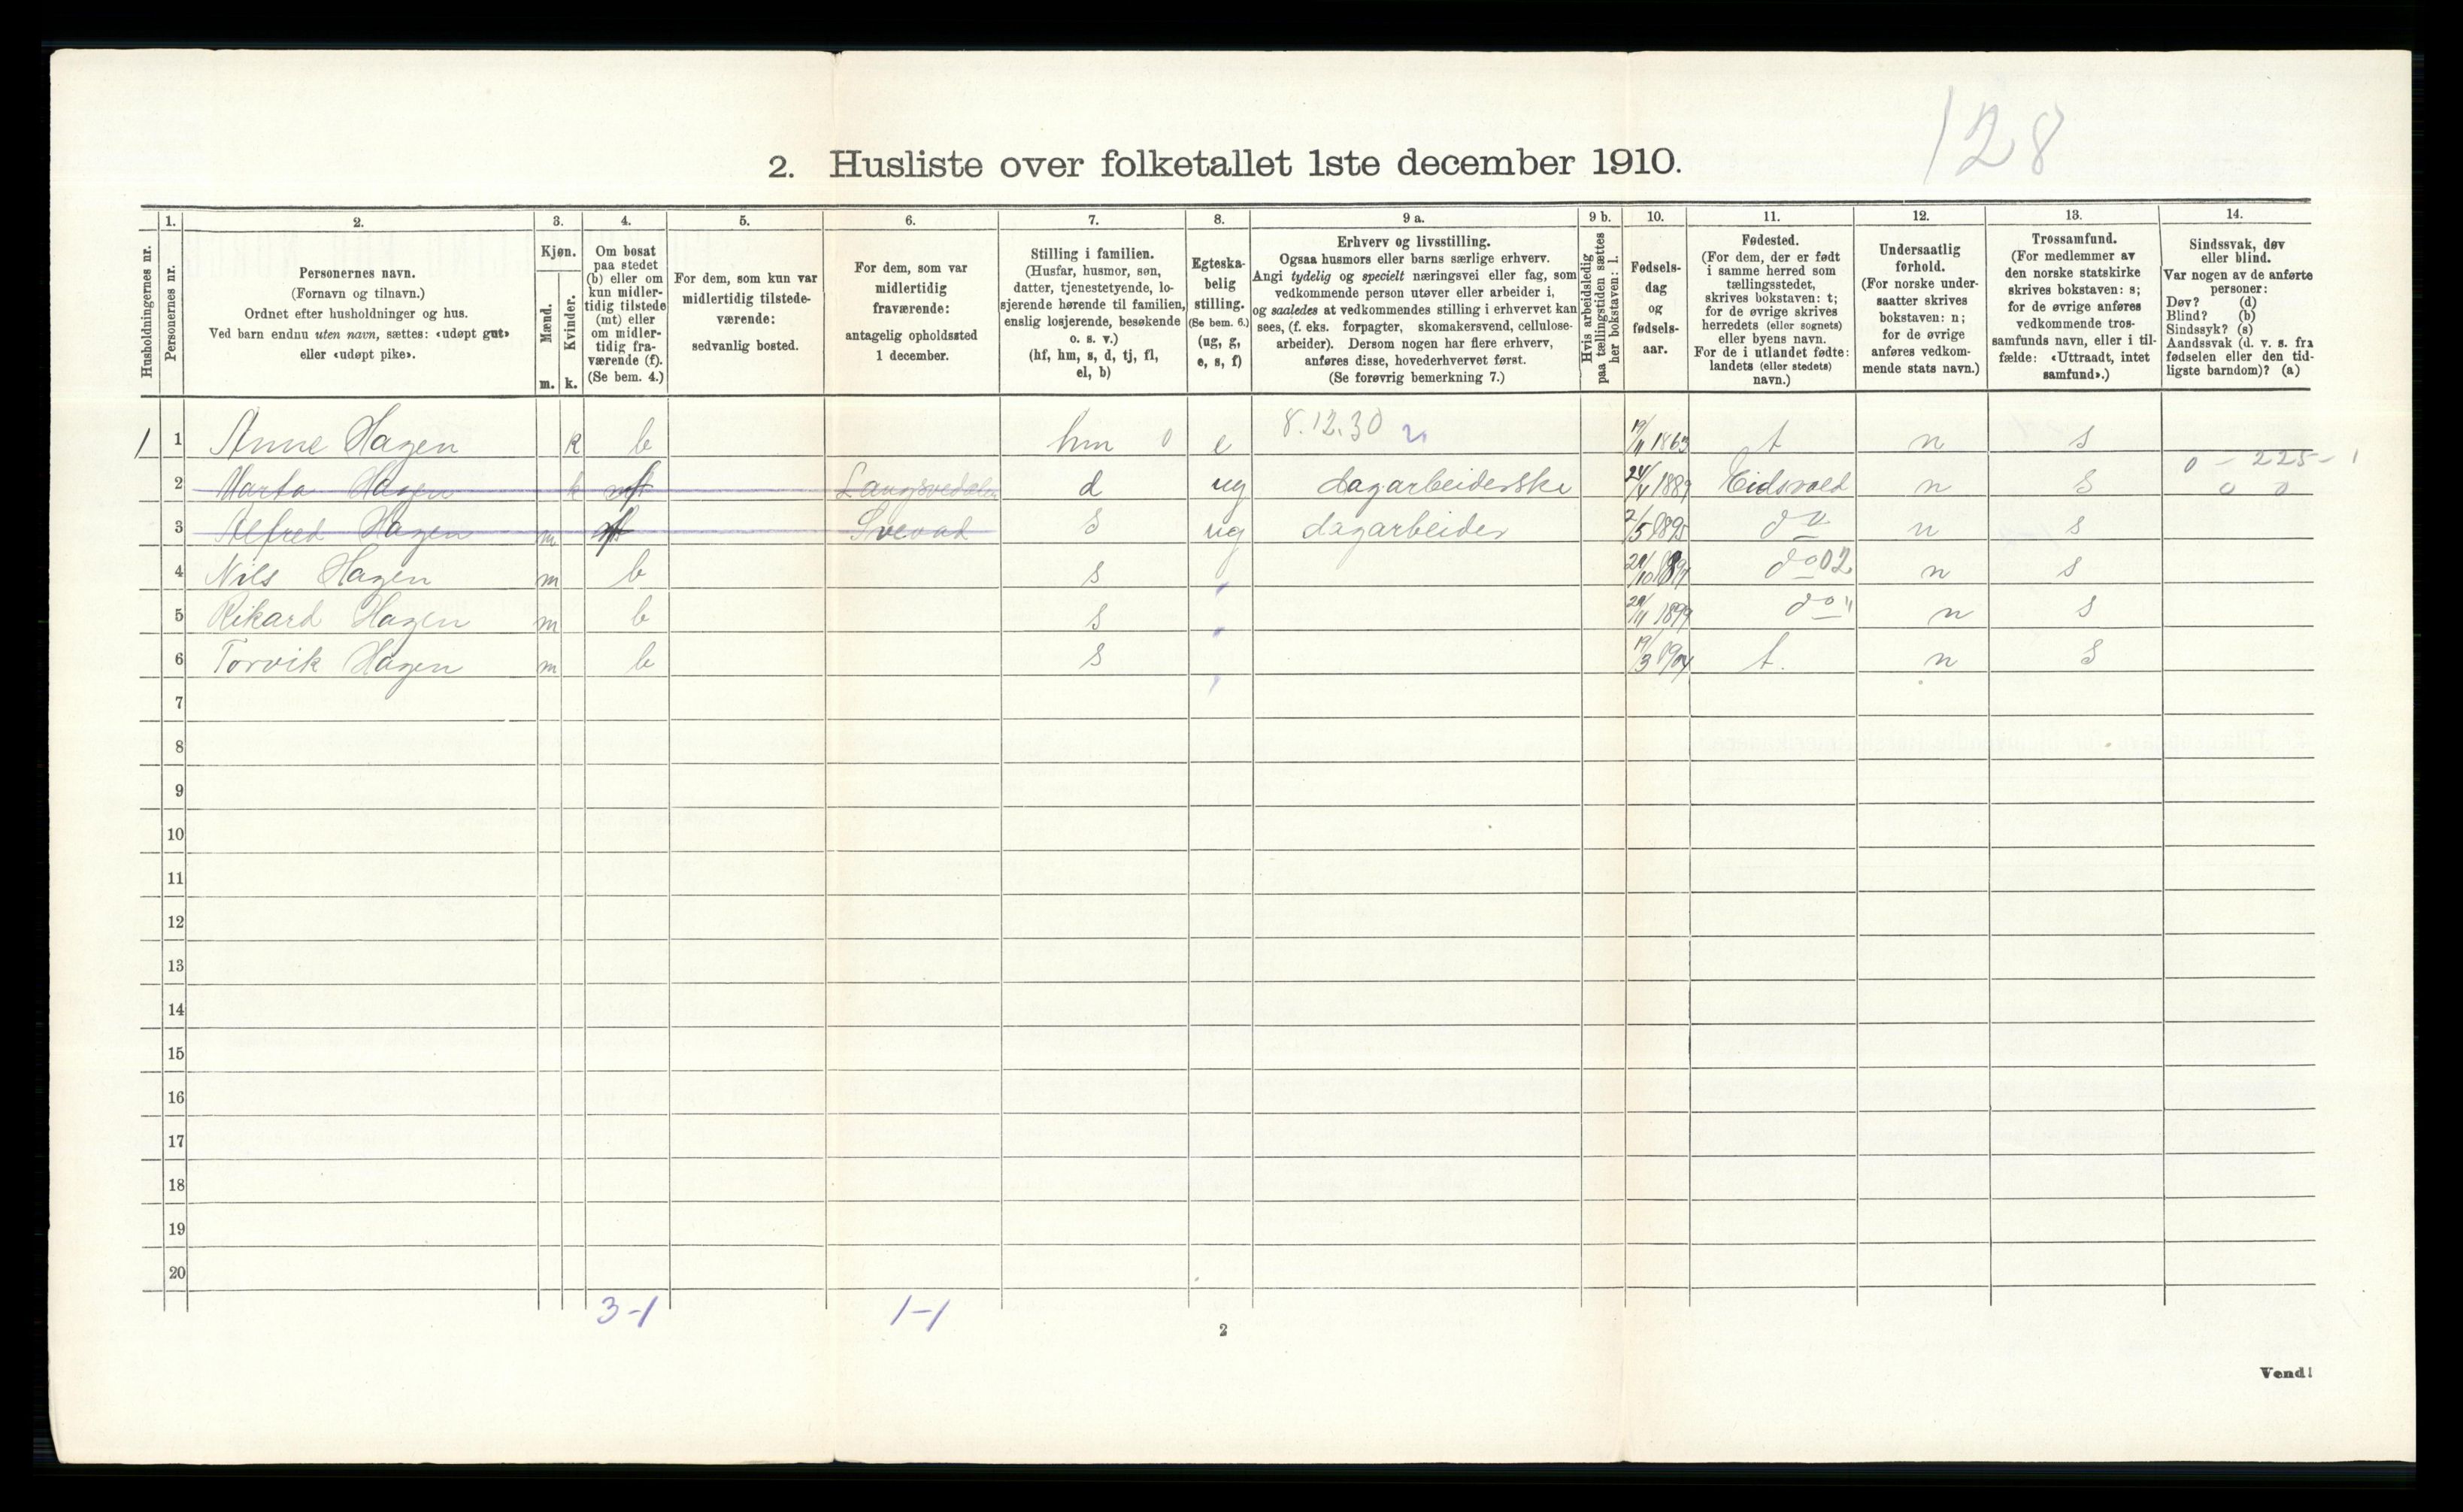 128
2. Husliste over folketallet 1ste december 1910.
Husholdningernes nr.
1.
Personernes nr.
2.
Personernes navn.
(Fornavn og tilnavn.)
Ordnet efter husholdninger og hus.
Ved barn endnu uten navn, sættes: «udøpt gut»
eller «udøpt pike».
3.
Kjøn.
Mænd.
Kvinder.
m. k.
4.
Om bosat
paa stedet
(b) eller om
kun midler-
tidig tilstede
(mt) eller
om midler-
tidig fra-
værende (f).
(Se bem. 4.)
5.
For dem, som kun var
midlertidig tilstede-
værende:
sedvanlig bosted.
6.
For dem, som var
midlertidig
fraværende:
antagelig opholdssted
1 december.
7.
Stilling i familien.
(Husfar, husmor, søn,
datter, tjenestetyende, lo-
sjerende hørende til familien,
enslig losjerende, besøkende
o. s. v.)
(hf, hm, s, d, tj, fl,
el, b)
8.
Egteska-
belig
stilling.
(Se bem. 6.)
(ug, g,
e, s, f)
9 a.
Erhverv og livsstilling.
Ogsaa husmors eller barns særlige erhverv.
Angi tydelig og specielt næringsvei eller fag, som
vedkommende person utøver eller arbeider i,
og saaledes at vedkommendes stilling i erhvervet kan
sees, (f. eks. forpagter, skomakersvend, cellulose-
arbeider). Dersom nogen har flere erhverv,
anføres disse, hovederhvervet først.
(Se forøvrig bemerkning 7.)
9 b.
Hvis arbeidsledig
paa tællingstiden sættes
her bokstaven: l.
10.
Fødsels-
dag
og
fødsels-
aar.
11.
Fødested.
(For dem, der er født
i samme herred som
tællingsstedet,
skrives bokstaven: t;
for de øvrige skrives
herredets (eller sognets)
eller byens navn.
For de i utlandet fødte:
landets (eller stedets)
navn.)
12.
Undersaatlig
forhold.
(For norske under-
saatter skrives
bokstaven: n;
for de øvrige
anføres vedkom-
mende stats navn.)
13.
Trossamfund.
(For medlemmer av
den norske statskirke
skrives bokstaven: s;
for de øvrige anføres
vedkommende tros-
samfunds navn, eller i til-
fælde: «Uttraadt, intet
samfund».)
14.
Sindssvak, døv
eller blind.
Var nogen av de anførte
personer:
Døv? (d)
Blind? (b)
Sindssyk? (s)
Aandssvak (d. v. s. fra
fødselen eller den tid-
ligste barndom)? (a)
1 1 Anne Hagen k b hm 0 e 8.12.30 1863 t n s
0 - 225 - 1
2 Marta Hagen k d ug dagarbeiderske 24/4 1889 Eidsvold n s 0 0
3 Alfred Hagen m s ug dagarbeider 2/5 1895 do n s
4 Nils Hagen m b s do 02 n s
5 Rikard Hagen m b s 1899 do " n s
6 Torvik Hagen m b s 19/3 1904 t. n s
7
8
9
10
11
12
13
14
15
16
17
18
19
20
3-1 1-1
2
Vend!